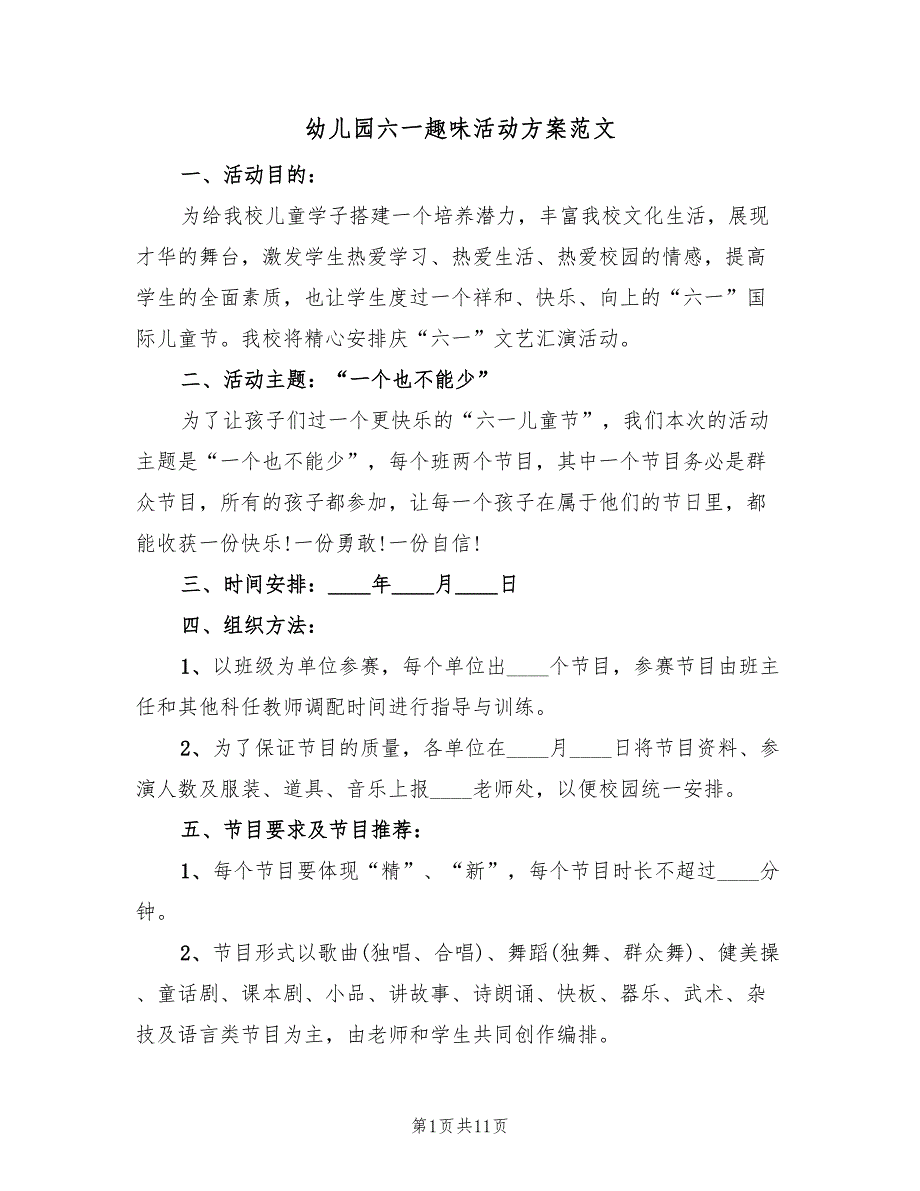 幼儿园六一趣味活动方案范文
一、活动目的：
为给我校儿童学子搭建一个培养潜力，丰富我校文化生活，展现
才华的舞台，激发学生热爱学习、热爱生活、热爱校园的情感，提高
学生的全面素质，也让学生度过一个祥和、快乐、向上的“六一”国
际儿童节。我校将精心安排庆“六一”文艺汇演活动。
二、活动主题：“一个也不能少”
为了让孩子们过一个更快乐的“六一儿童节”，我们本次的活动
主题是“一个也不能少”，每个班两个节目，其中一个节目务必是群
众节目，所有的孩子都参加，让每一个孩子在属于他们的节日里，都
能收获一份快乐!一份勇敢!一份自信!
三、时间安排：____年____月____日
四、组织方法：
1、以班级为单位参赛，每个单位出____个节目，参赛节目由班主
任和其他科任教师调配时间进行指导与训练。
2、为了保证节目的质量，各单位在____月____日将节目资料、参
演人数及服装、道具、音乐上报____老师处，以便校园统一安排。
五、节目要求及节目推荐：
1、每个节目要体现“精”、“新”，每个节目时长不超过____分
钟。
2、节目形式以歌曲(独唱、合唱)、舞蹈(独舞、群众舞)、健美操
、童话剧、课本剧、小品、讲故事、诗朗诵、快板、器乐、武术、杂
技及语言类节目为主，由老师和学生共同创作编排。
第1页共11页